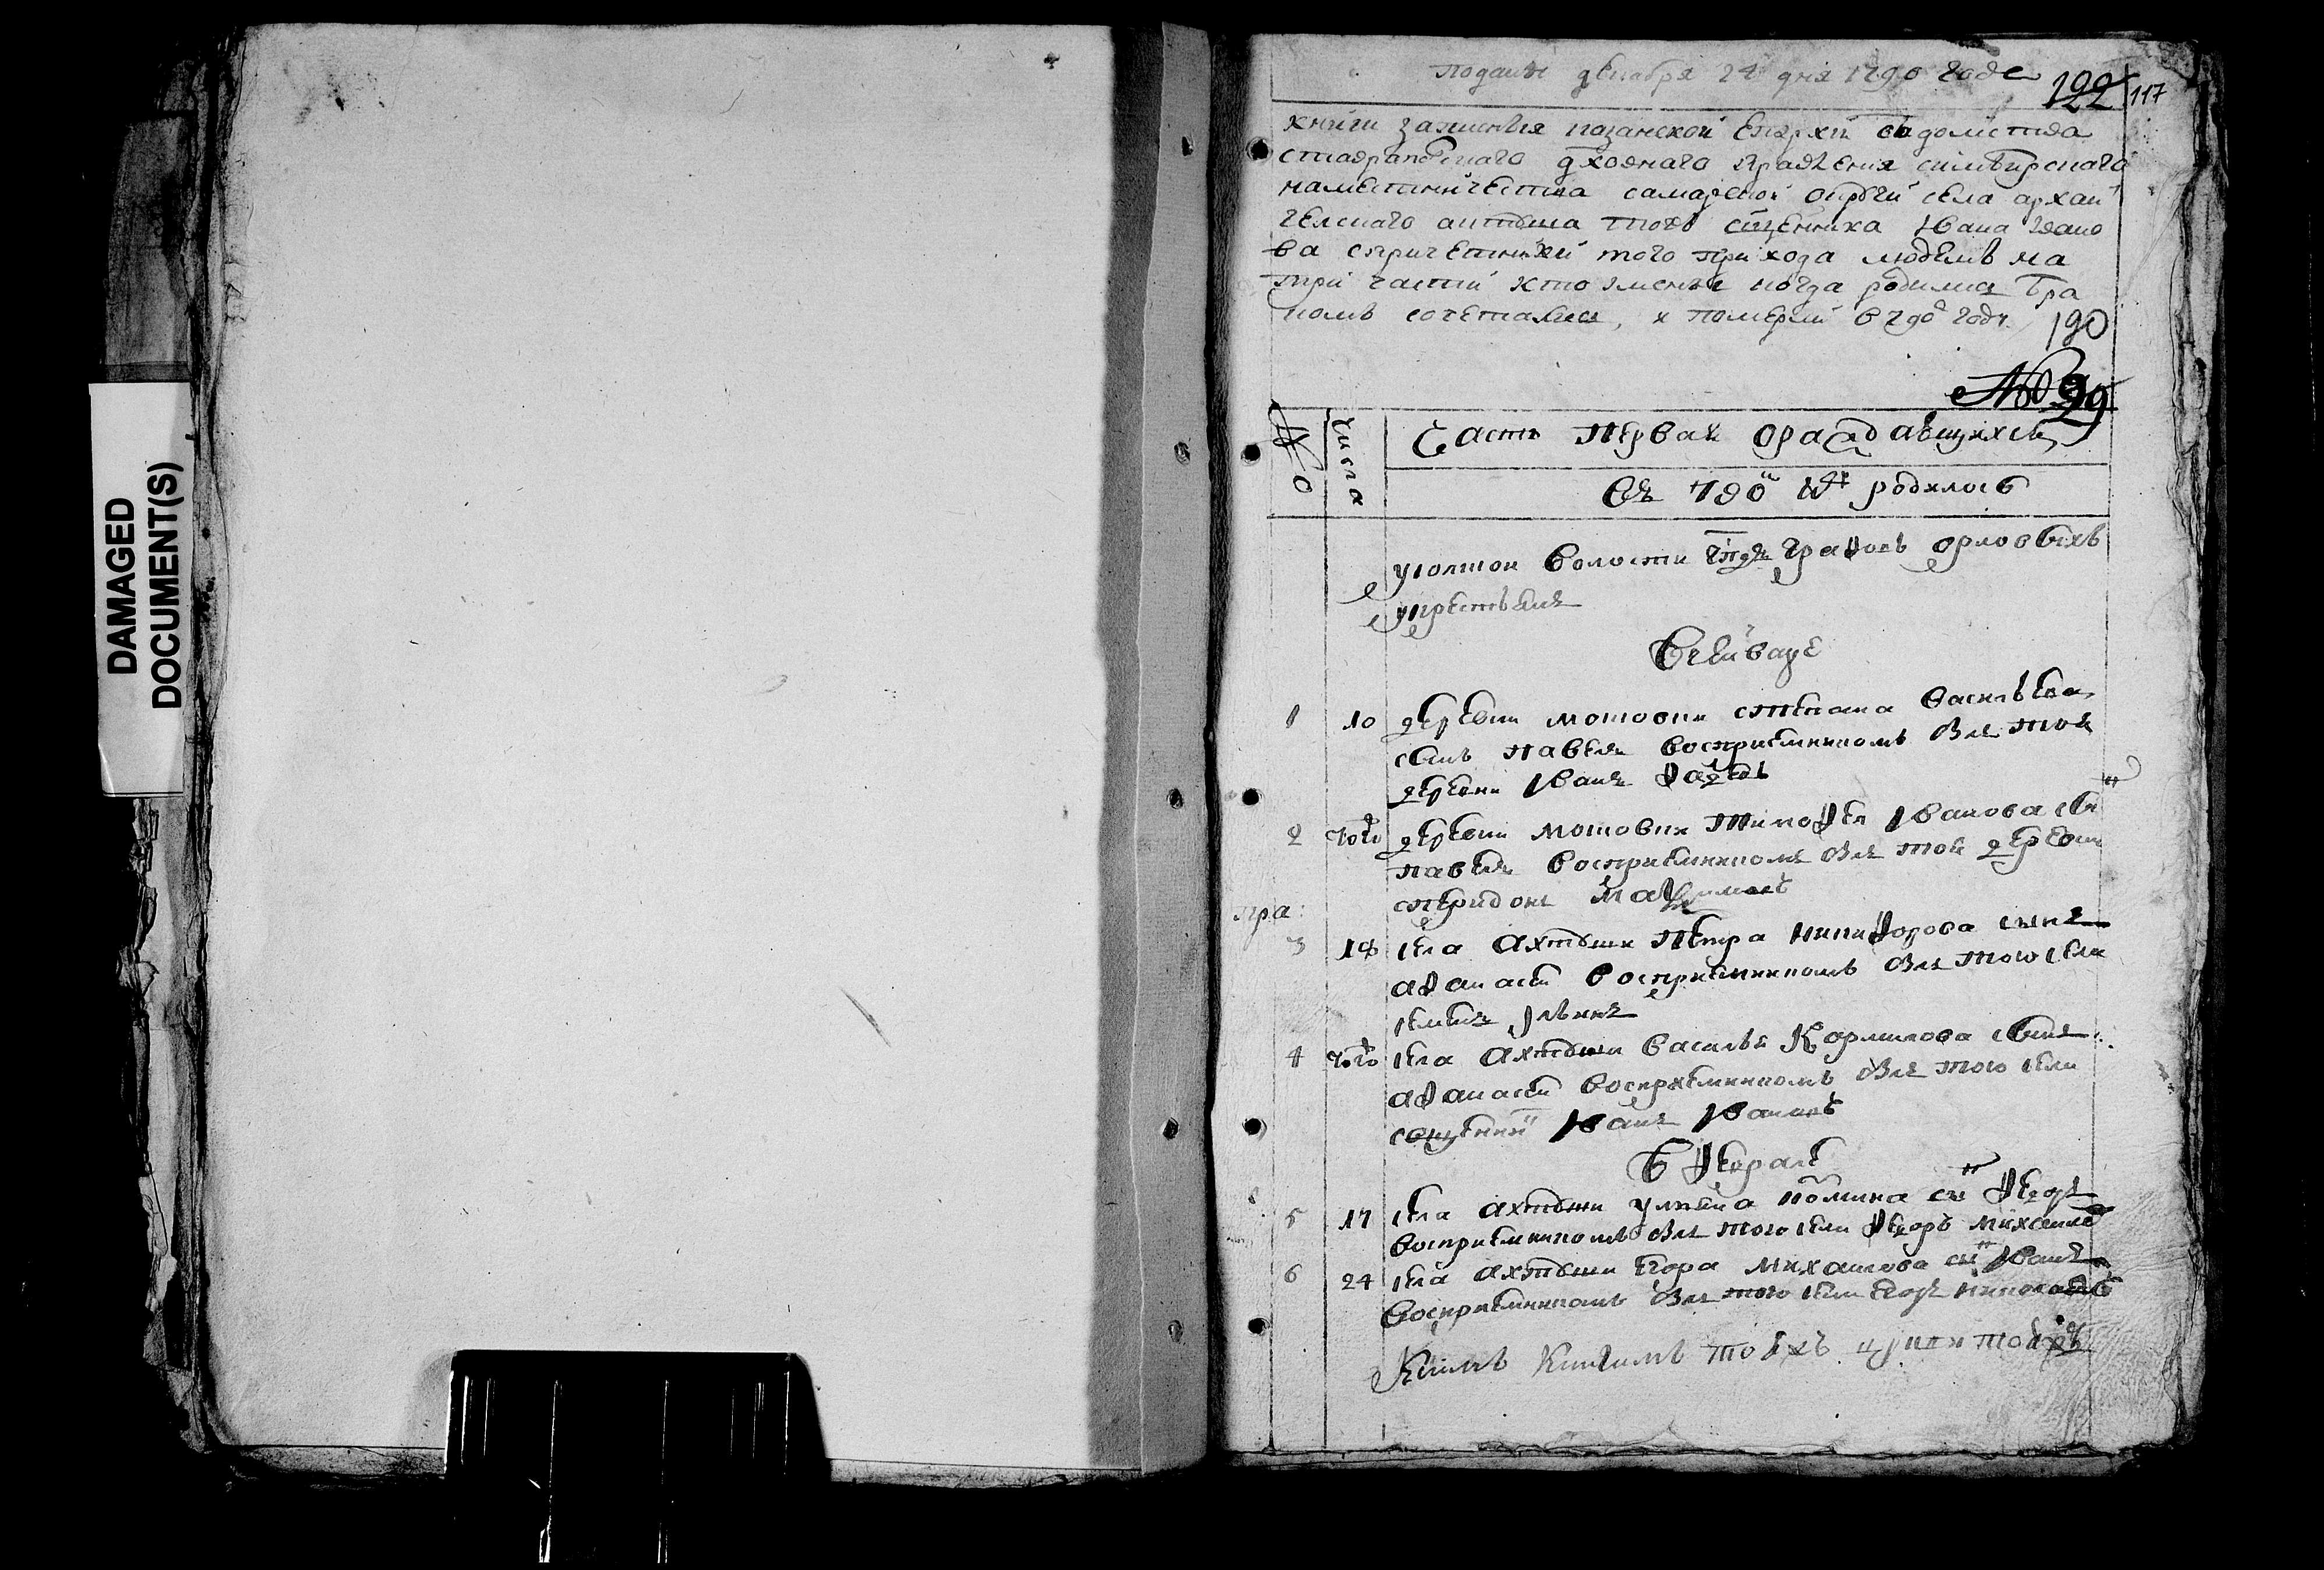 DAMAGED
DOCUMENT(S)
подана декабря 24 дня 1790 года
122 117
книги записныя казанской епархии ведомства
ставропольскаго духовнаго правления симбирскаго
наместничества самарской округи села архан
гелскаго ахтуши тожъ священника Ивана Ивано
ва спричетники того прихода людемъ на
три части кто имяны когда родился бра
комъ сочетался, и померли в 790 годе
190
№ 99
число
Часть первая о раждающихся
въ 790 году родилось
усолской волости графовъ орловыхъ
укрестьянъ
В генваре
1 10 деревни мошовки степана васильева
сынъ павелъ восприемникомъ былъ той
деревни Иванъ
2 того деревни мошовки Тимофея Иванова сынъ
павелъ восприемникомъ былъ той деревни
спиридонъ
пра:
3 18 села Ахтуши Петра Никифорова сынъ
афанасей восприемникомъ былъ того села
4 того села Ахтуши василья Кормилова сынъ
афанасей восприемникомъ былъ того села
священникъ Иванъ Ивановъ
В феврале
5 17 села Ахтуши козмина сынъ Федоръ
восприемникомъ былъ того села Федоръ михайловъ
6 24 села Ахтуши Егора михайлова сынъ Иванъ
восприемникомъ былъ того села Николаевъ
Къ симъ книгамъ